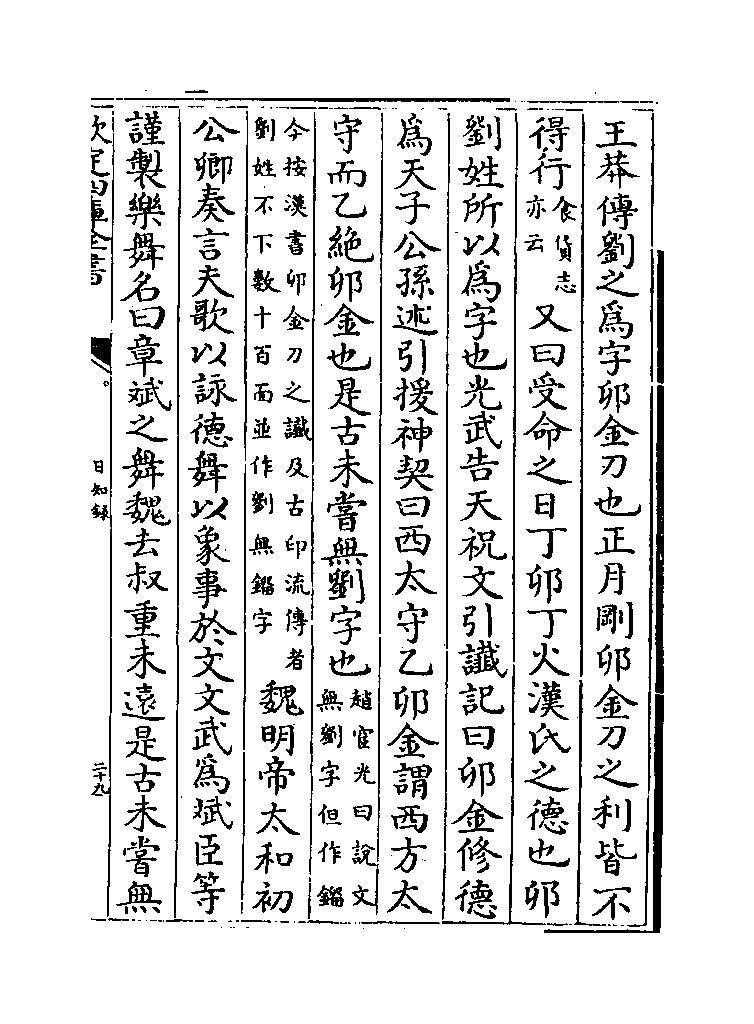 王莽傳劉之爲字卯金刀也正月剛卯金刀之利皆不
得行食貨志亦云又曰受命之日丁卯丁火漢氏之德也卯
劉姓所以爲字也光武告天祝文引讖記曰卯金修德
爲天子公孫述引援神契曰西太守乙卯金謂西方太
守而乙絶卯金也是古未嘗無劉字也趙宧光曰說文無劉字但作鎦
今按漢書卯金刀之讖及古印流傳者劉姓不下數十百面並作劉無鎦字魏明帝太和初
公卿奏言夫歌以詠德舞以象事於文文武爲斌臣等
謹製樂舞名曰章斌之舞魏去叔重未遠是古未嘗無
欽定四庫全書
日知錄
二十九